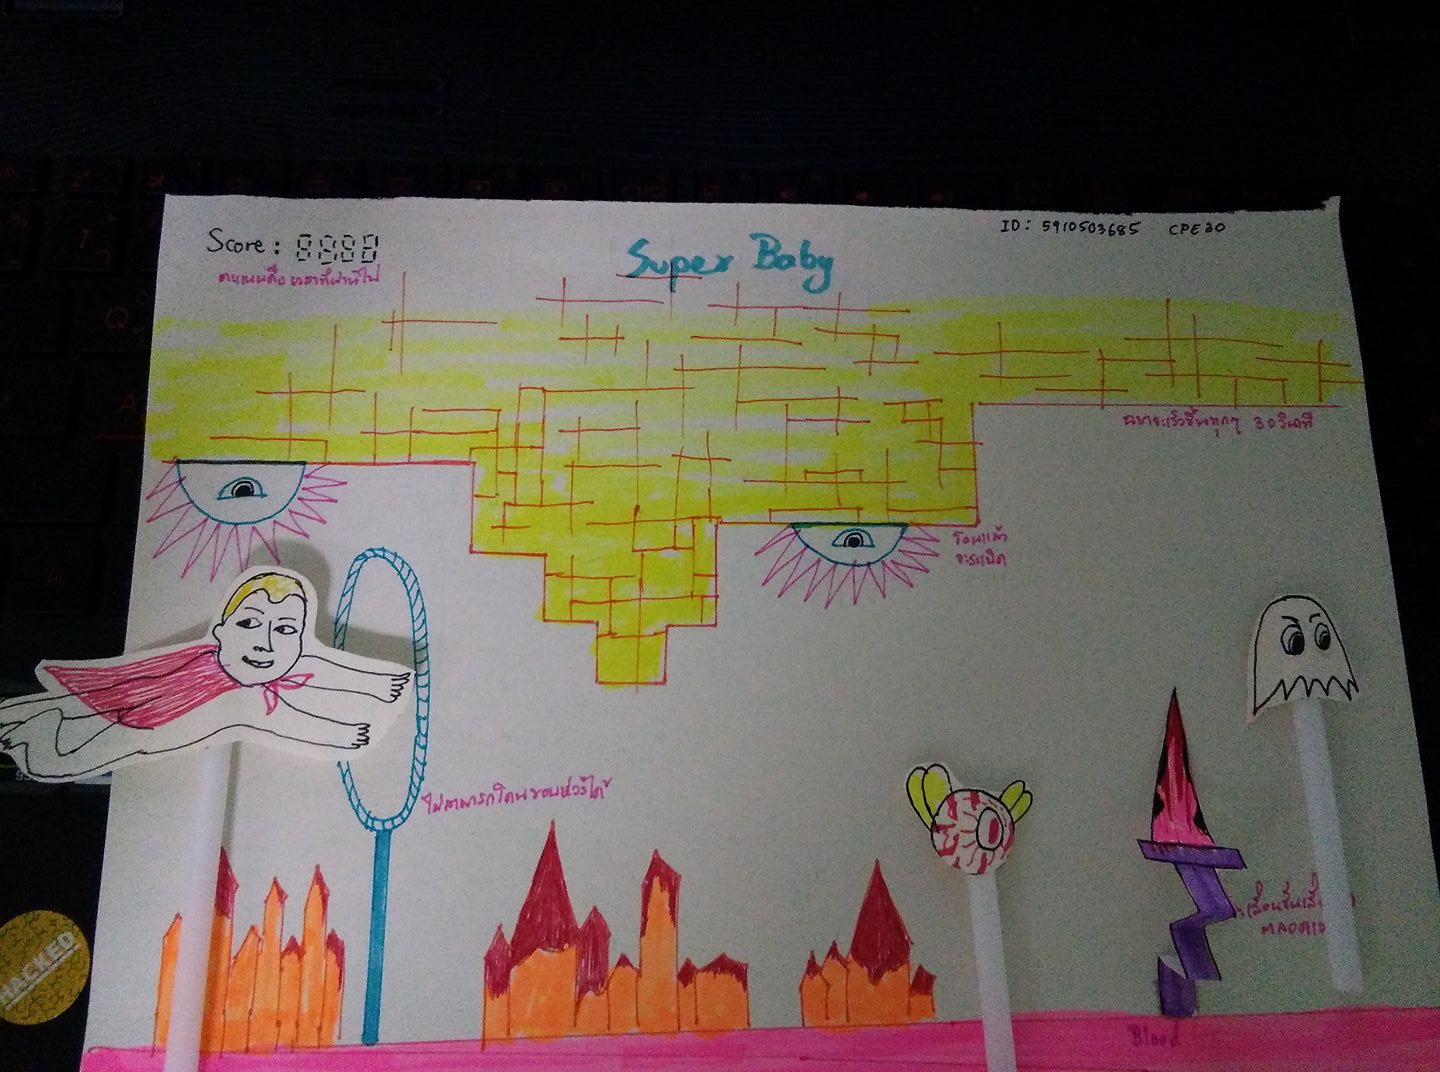 Score: 8888
คะแนนคือ เวลาที่ผ่านไป
Super Baby
ID: 5910503685 CPE30
ฉากจะเร็วขึ้นทุกๆ 30 วินาที
โดนแล้ว
จะระเบิด
ไม่สามารถโดนขอบห่วงได้
Blood
HACKED